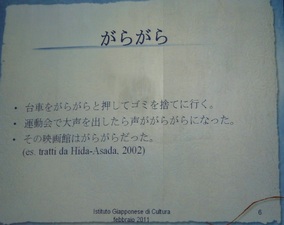 がらがら
• 台車をがらがらと押してゴミを捨てに行く。
• 運動会で大声を出したら声ががらがらになった。
• その映画館はがらがらだった。
(es. tratti da Hida-Asada, 2002)
Istituto Giapponese di Cultura
febbraio 2011
6